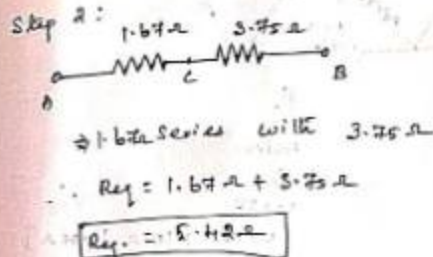 Step 2:
1.67Ω 3.75Ω
A C B
⇒ 1.67Ω series with 3.75Ω
∴ Req = 1.67Ω + 3.75Ω
Req. = 5.42Ω